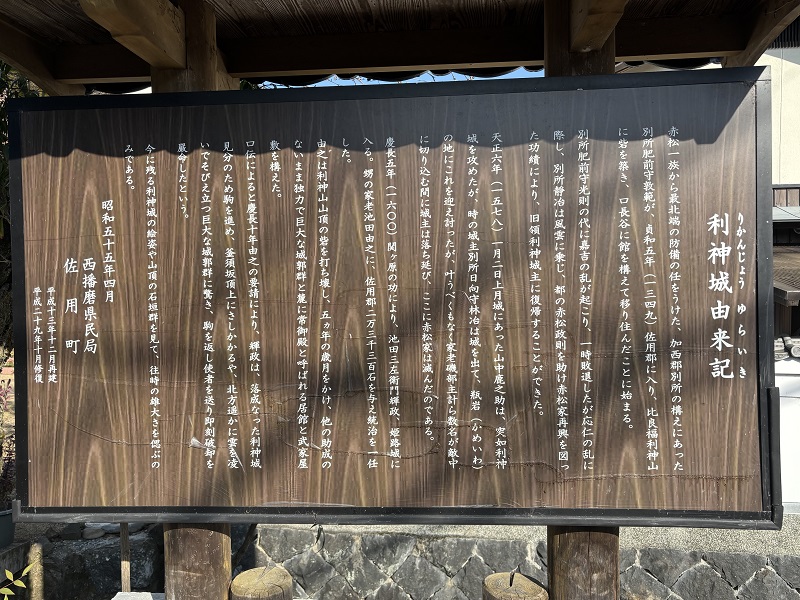 りかんじょう ゆらいき
利神城由来記
赤松一族から最北端の防備の任をうけた、加西郡別所の構えにあった
別所肥前守敦範が、貞和五年(一三四九)佐用郡に入り、比良福利神山
に砦を築き、口長谷に館を構えて移り住んだことに始まる。
別所肥前守光則の代に嘉吉の乱が起こり、一時敗退したが応仁の乱に
際し、別所静治は風雲に乗じ、都の赤松政則を助け赤松家再興を図っ
た功績により、旧領利神城主に復帰することができた。
天正六年(一五七八)一月二日上月城にあった山中鹿之助は、突如利神
城を攻めたが、時の城主別所日向守林治は城を出て、瓶岩(かめいわ)
の地にこれを迎え討ったが、叶うべくもなく家老磯部主計ら数名が敵中
に切り込む間に城主は落ち延び、ここに赤松家は滅んだのである。
慶長五年(一六〇〇)関ヶ原の功により、池田三左衛門輝政、姫路城に
入る。甥の家老池田由之に、佐用郡二万三千三百石を与え統治を一任
した。
由之は利神山山頂の砦を打ち壊し、五ヵ年の歳月をかけ、他の助成の
ないまま独力で巨大な城郭群と麓に常御殿と呼ばれる居館と武家屋
敷を構えた。
口伝によると慶長十年由之の要請により、輝政は、落成なった利神城
見分のため駒を進め、釜須坂頂上にさしかかるや、北方遥かに雲を凌
いでそびえ立つ巨大な城郭群に驚き、駒を返し使者を送り即刻破却を
厳命したという。
今に残る利神城の絵姿や山頂の石垣群を見て、往時の雄大さを偲ぶの
みである。
昭和五十五年四月
西播磨県民局
佐用町
平成十三年十二月再建
平成二十九年十月修復